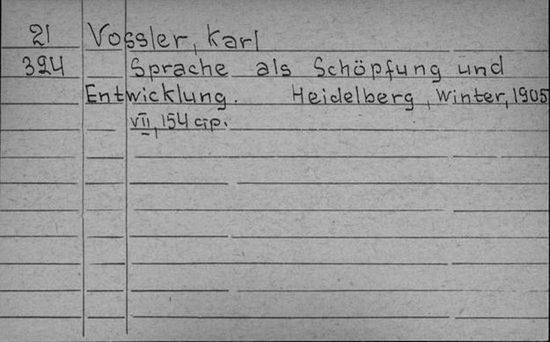 21 Vossler, Karl
394 Sprache als Schöpfung und
Entwicklung. Heidelberg, Winter, 1905
VII, 154 стр.